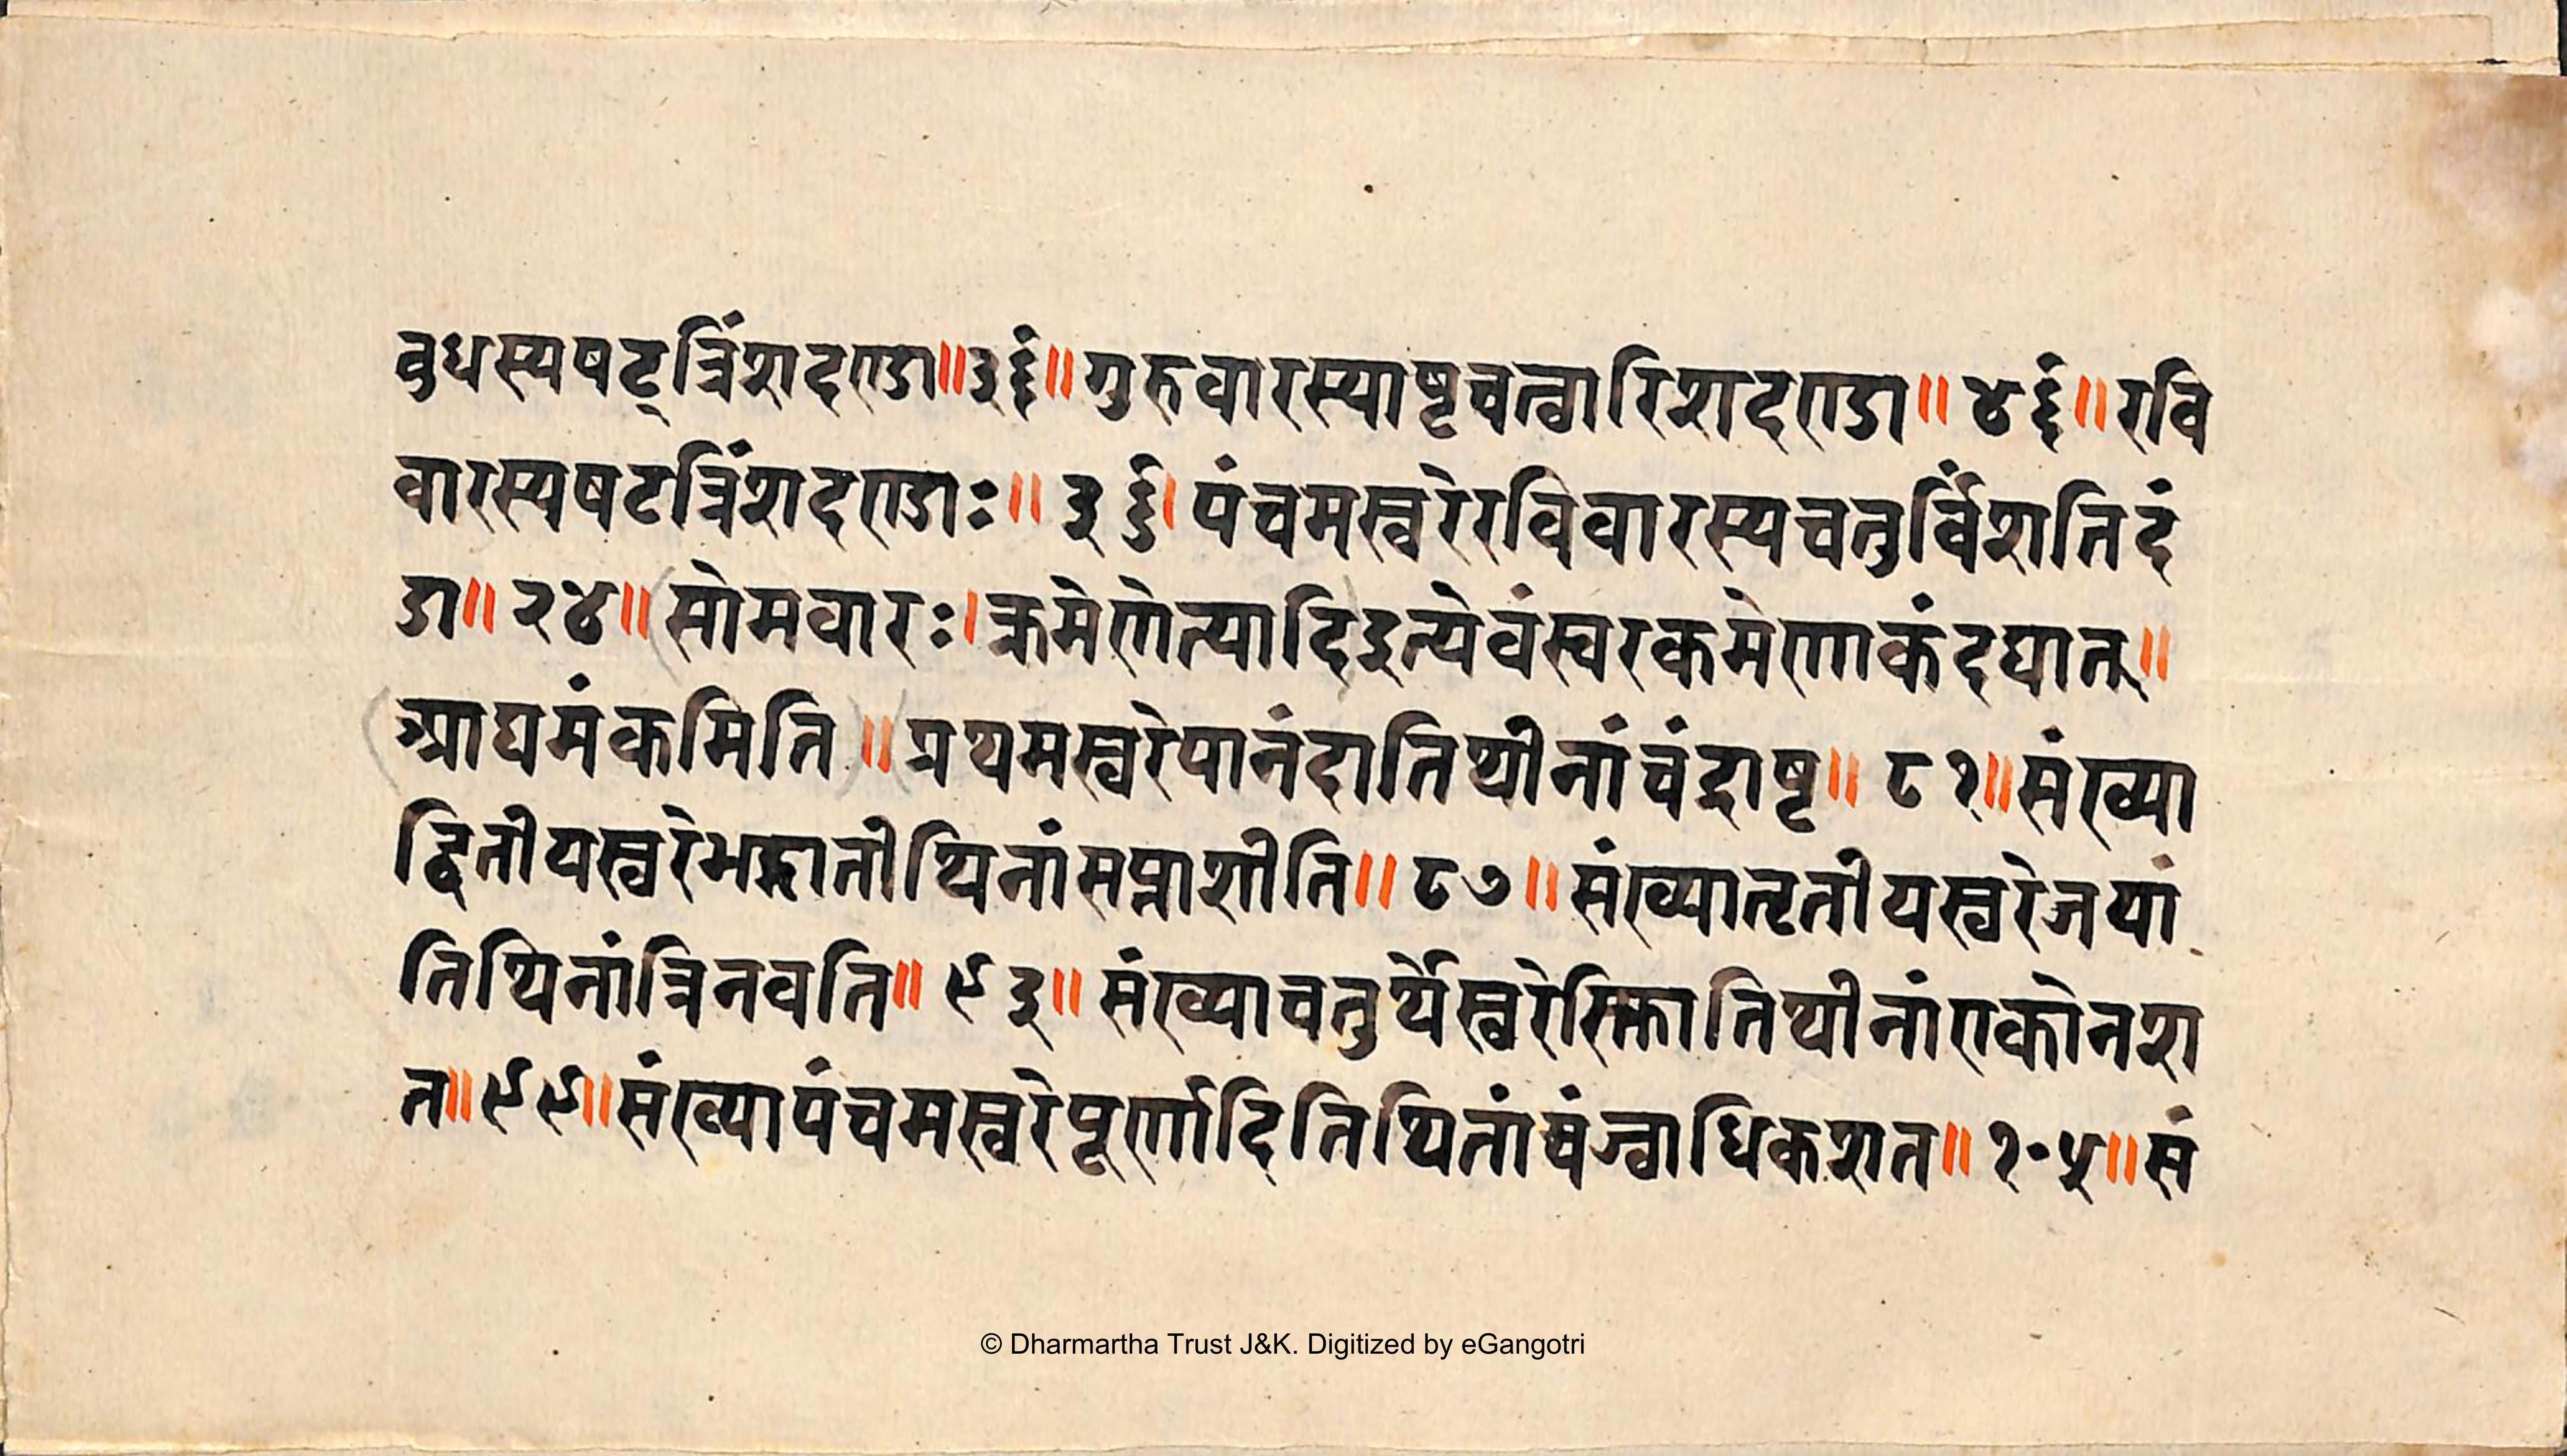 वुधस्यषट्त्रिंशदण्डा॥३६॥गुरुवारस्याष्टचत्वारिशदण्डा॥४६॥रवि
वारस्यषटत्रिंशदण्डाः॥३६।पंचमस्वरेरविवारस्यचतुर्विंशतिदं
डा॥२४॥(सोमवारः।क्रमेणेत्यादि)इत्येवंस्वरकमेणाकंदद्यात्॥
(आद्यमंकमिति)॥(प्रथमस्वरेपानंदातिथीनांचंद्राष्ट॥८१॥संख्या
द्वितीयस्वरेभद्रातीथिनांसप्ताशीति॥८७॥संख्यातृतीयस्वरेजयां
तिथिनांत्रिनवति॥९३॥संख्याचतुर्थेस्वरेरिक्तातिथीनांएकोनश
त॥९९॥संख्यापंचमस्वरेपूर्णादितिथितांपंज्वाधिकशत॥१०५॥सं
© Dharmartha Trust J&K. Digitized by eGangotri